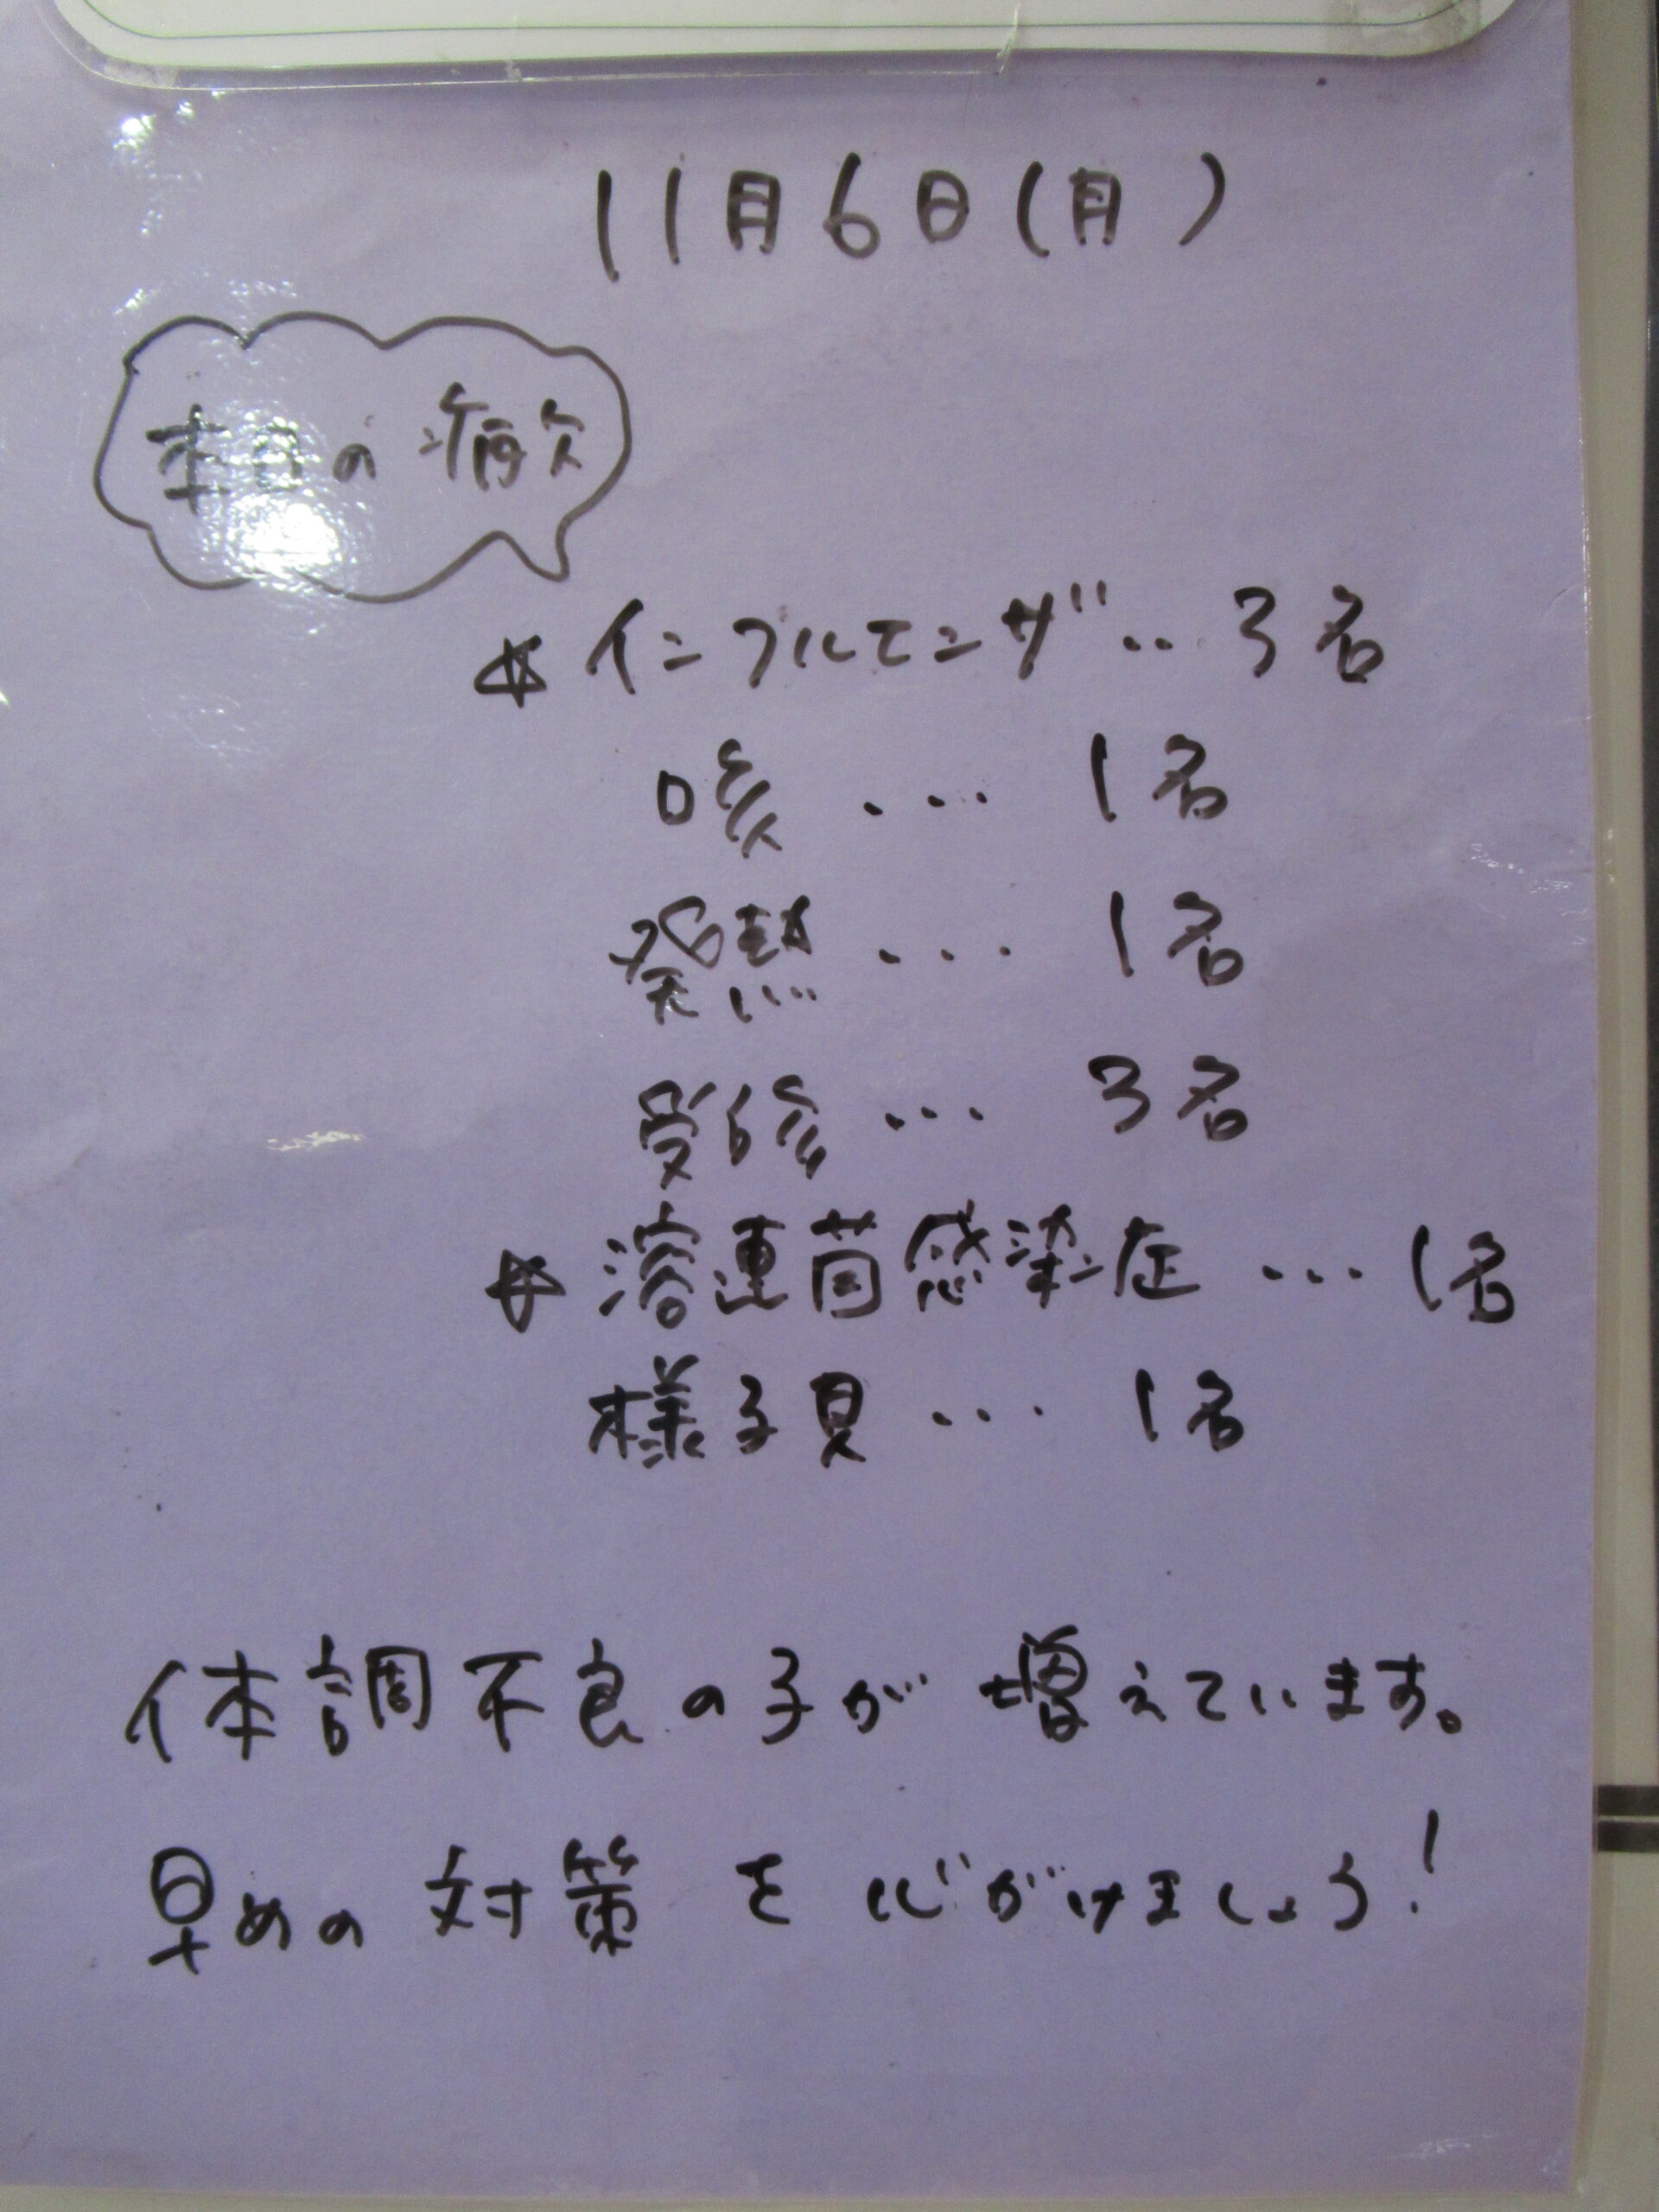 11月6日(月)
本日の病欠
☆インフルエンザ‥3名
咳・・・・1名
発熱・・・・1名
受診・・・3名
☆溶連菌感染症・・・1名
様子見・・・1名
体調不良の子が増えています。
早めの対策を心がけましょう!